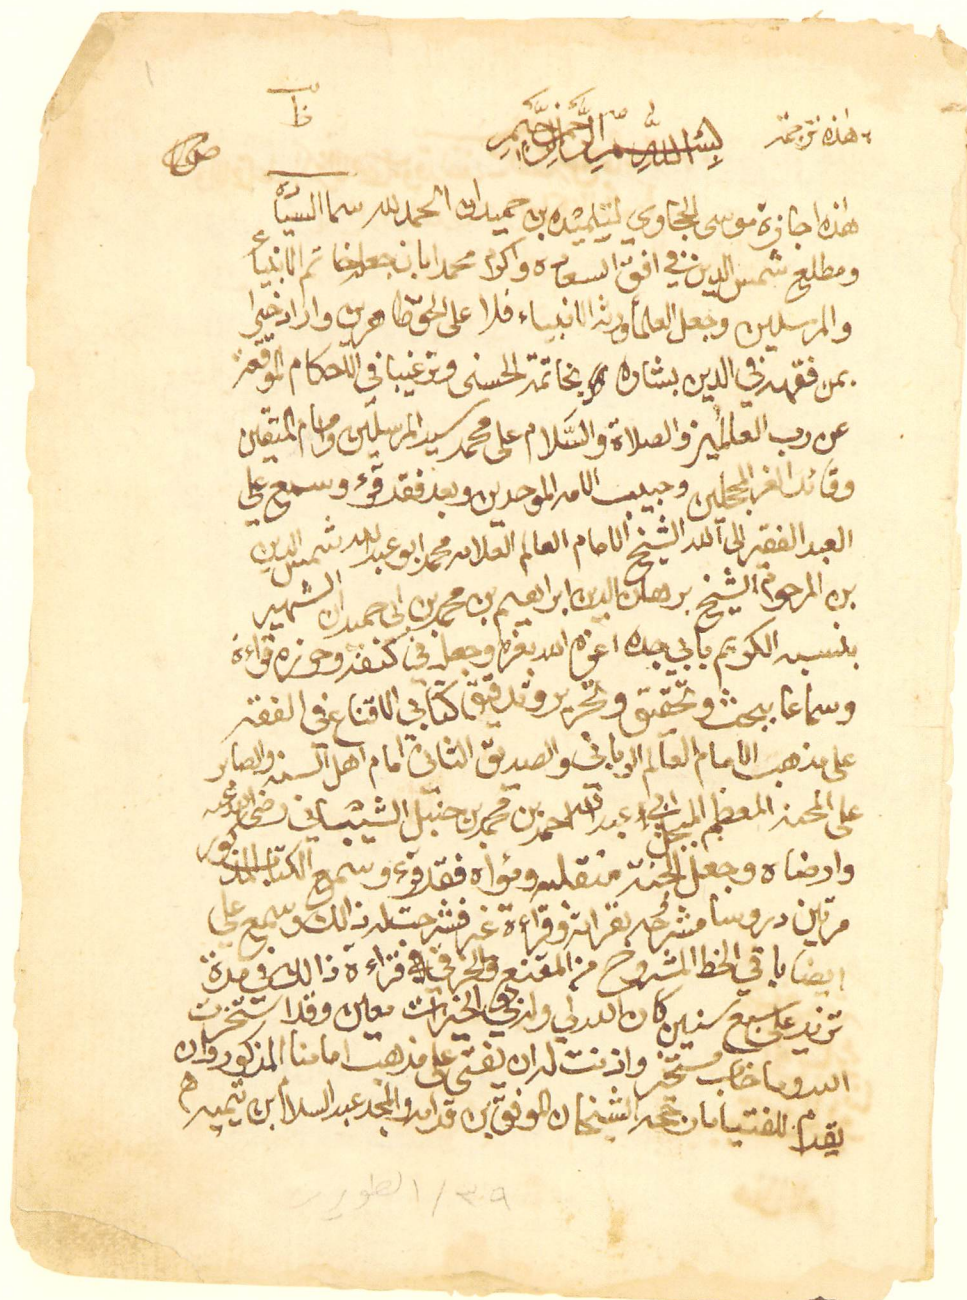 هٰذه ترجمة
بسم الله الرحمن الرحيم
هٰذه اجازة موسى الحجاوي لتلميذه بن حميدان الحمد لله سما السيادة
ومطلع شمس الدين في افق السعاده واكرم محمدا بان جعله خاتم الانبياء
والمرسلين وجعل العلماء ورثة الانبياء فلا على الحق ظاهرين واراد خيرا
بمن فقهه في الدين بشارة بخاتمة الحسنى وترغيبا في الاحكام الموقعة
عن رب العلمين والصلاة والسلام على محمد سيد المرسلين وامام المتقين
وقائد الغر المحجلين وحبيب الله الموحدين وبعد فقد قرء وسمع علي
العبد الفقير الى الله الشيخ الامام العالم العلامه محمد ابو عبد الله شمس الدين
بن المرحوم الشيخ برهان الدين ابراهيم بن محمد بن ابي حميدان الشهير
بنسبه الكريم بابي جده اعزه الله بعزه وجعله في كنفه وحرزه قراءة
وسماعا ببحث وتحقيق وتحرير وتدقيق كتابي الاقناع في الفقه
على مذهب الامام العالم الرباني والصديق الثاني امام اهل السنه والصابر
على المحنة المعظم المبجل ابي عبد الله احمد بن محمد بن حنبل الشيباني رضي الله عنه
وارضاه وجعل الجنة منقلبه ومثواه فقد قرء وسمع الكتاب المذكور
مرتين دروسا مشرحه بقرائته وقراءة غيره فشرحت له ذالك وسمع علي
ايضا باقي الخط المشروح من المقنع في قراءة ذالك في مدة
تزيد على سبع سنين كان الله لي وله في الخيرات معين وقد استخرت
الله وما خاب مستخير واذنت له ان يفتي على مذهب امامنا المذكور وان
يقدم للفتيا ما رجحه الشيخان الموفق بن قدامه والمجد عبد السلام بن تيميه